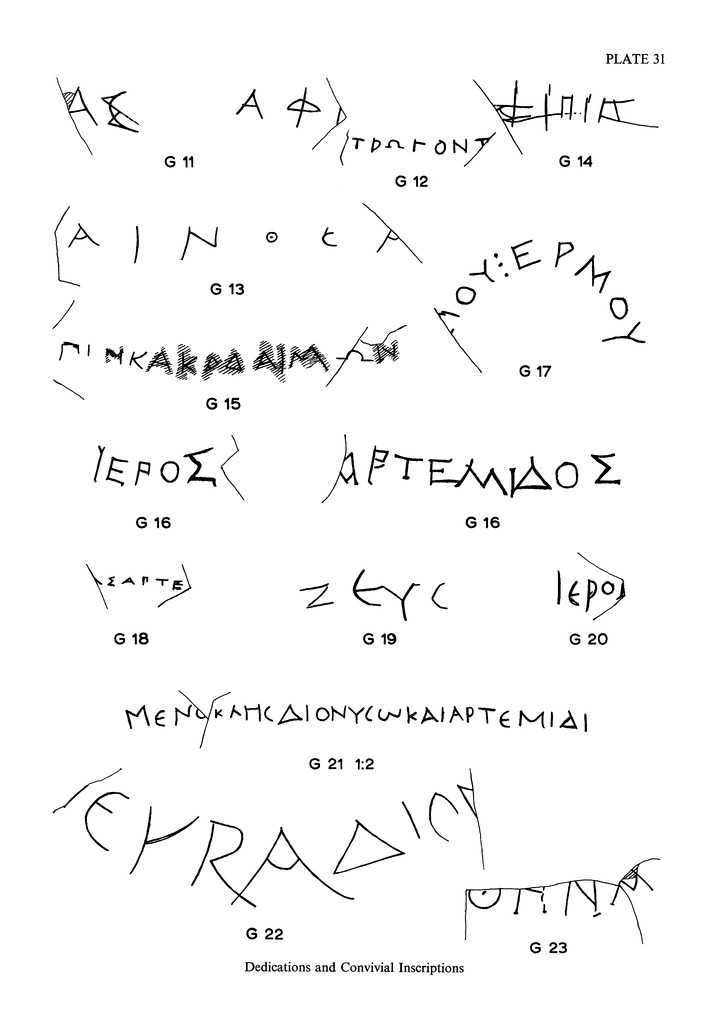 PLATE 31
ΑΣ Α Φ
G 11
ΤΡΩΓΟΝΤ
G 12
G 14
ΑΙΝΟϹΡ
G 13
ΜΟΥ⋮ΕΡΜΟΥ
G 17
ΠΙΝΚΑΚΡΔΑΙΜΩΝ
G 15
ΙΕΡΟΣ
G 16
ΑΡΤΕΜΙΔΟΣ
G 16
ΣΑΡΤΕ
G 18
ΖΕΥϹ
G 19
ΙΕΡΟ
G 20
ΜΕΝΟΚΛΗϹΔΙΟΝΥϹωΚΑΙΑΡΤΕΜΙΔΙ
G 21 1:2
G 22
G 23
Dedications and Convivial Inscriptions